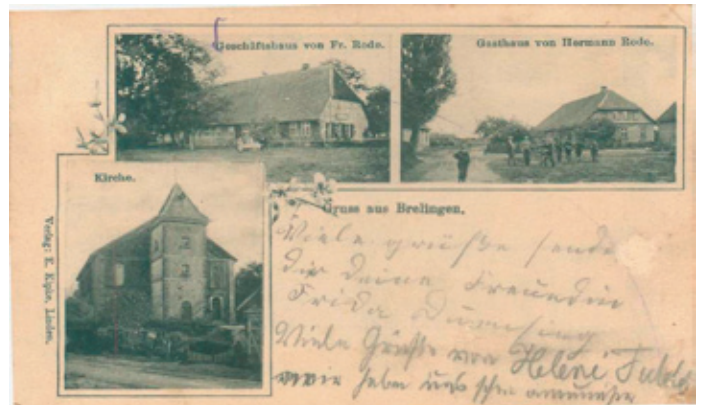 Geschäftshaus von Fr. Rode.
Gasthaus von Hermann Rode.
Kirche.
Gruss aus Brelingen.
Verlag: E. Kipke, Linden.
Viele grüße sendet
dir deine Freundin
Frida
Viele Grüße von Heleni
wir haben uns schon